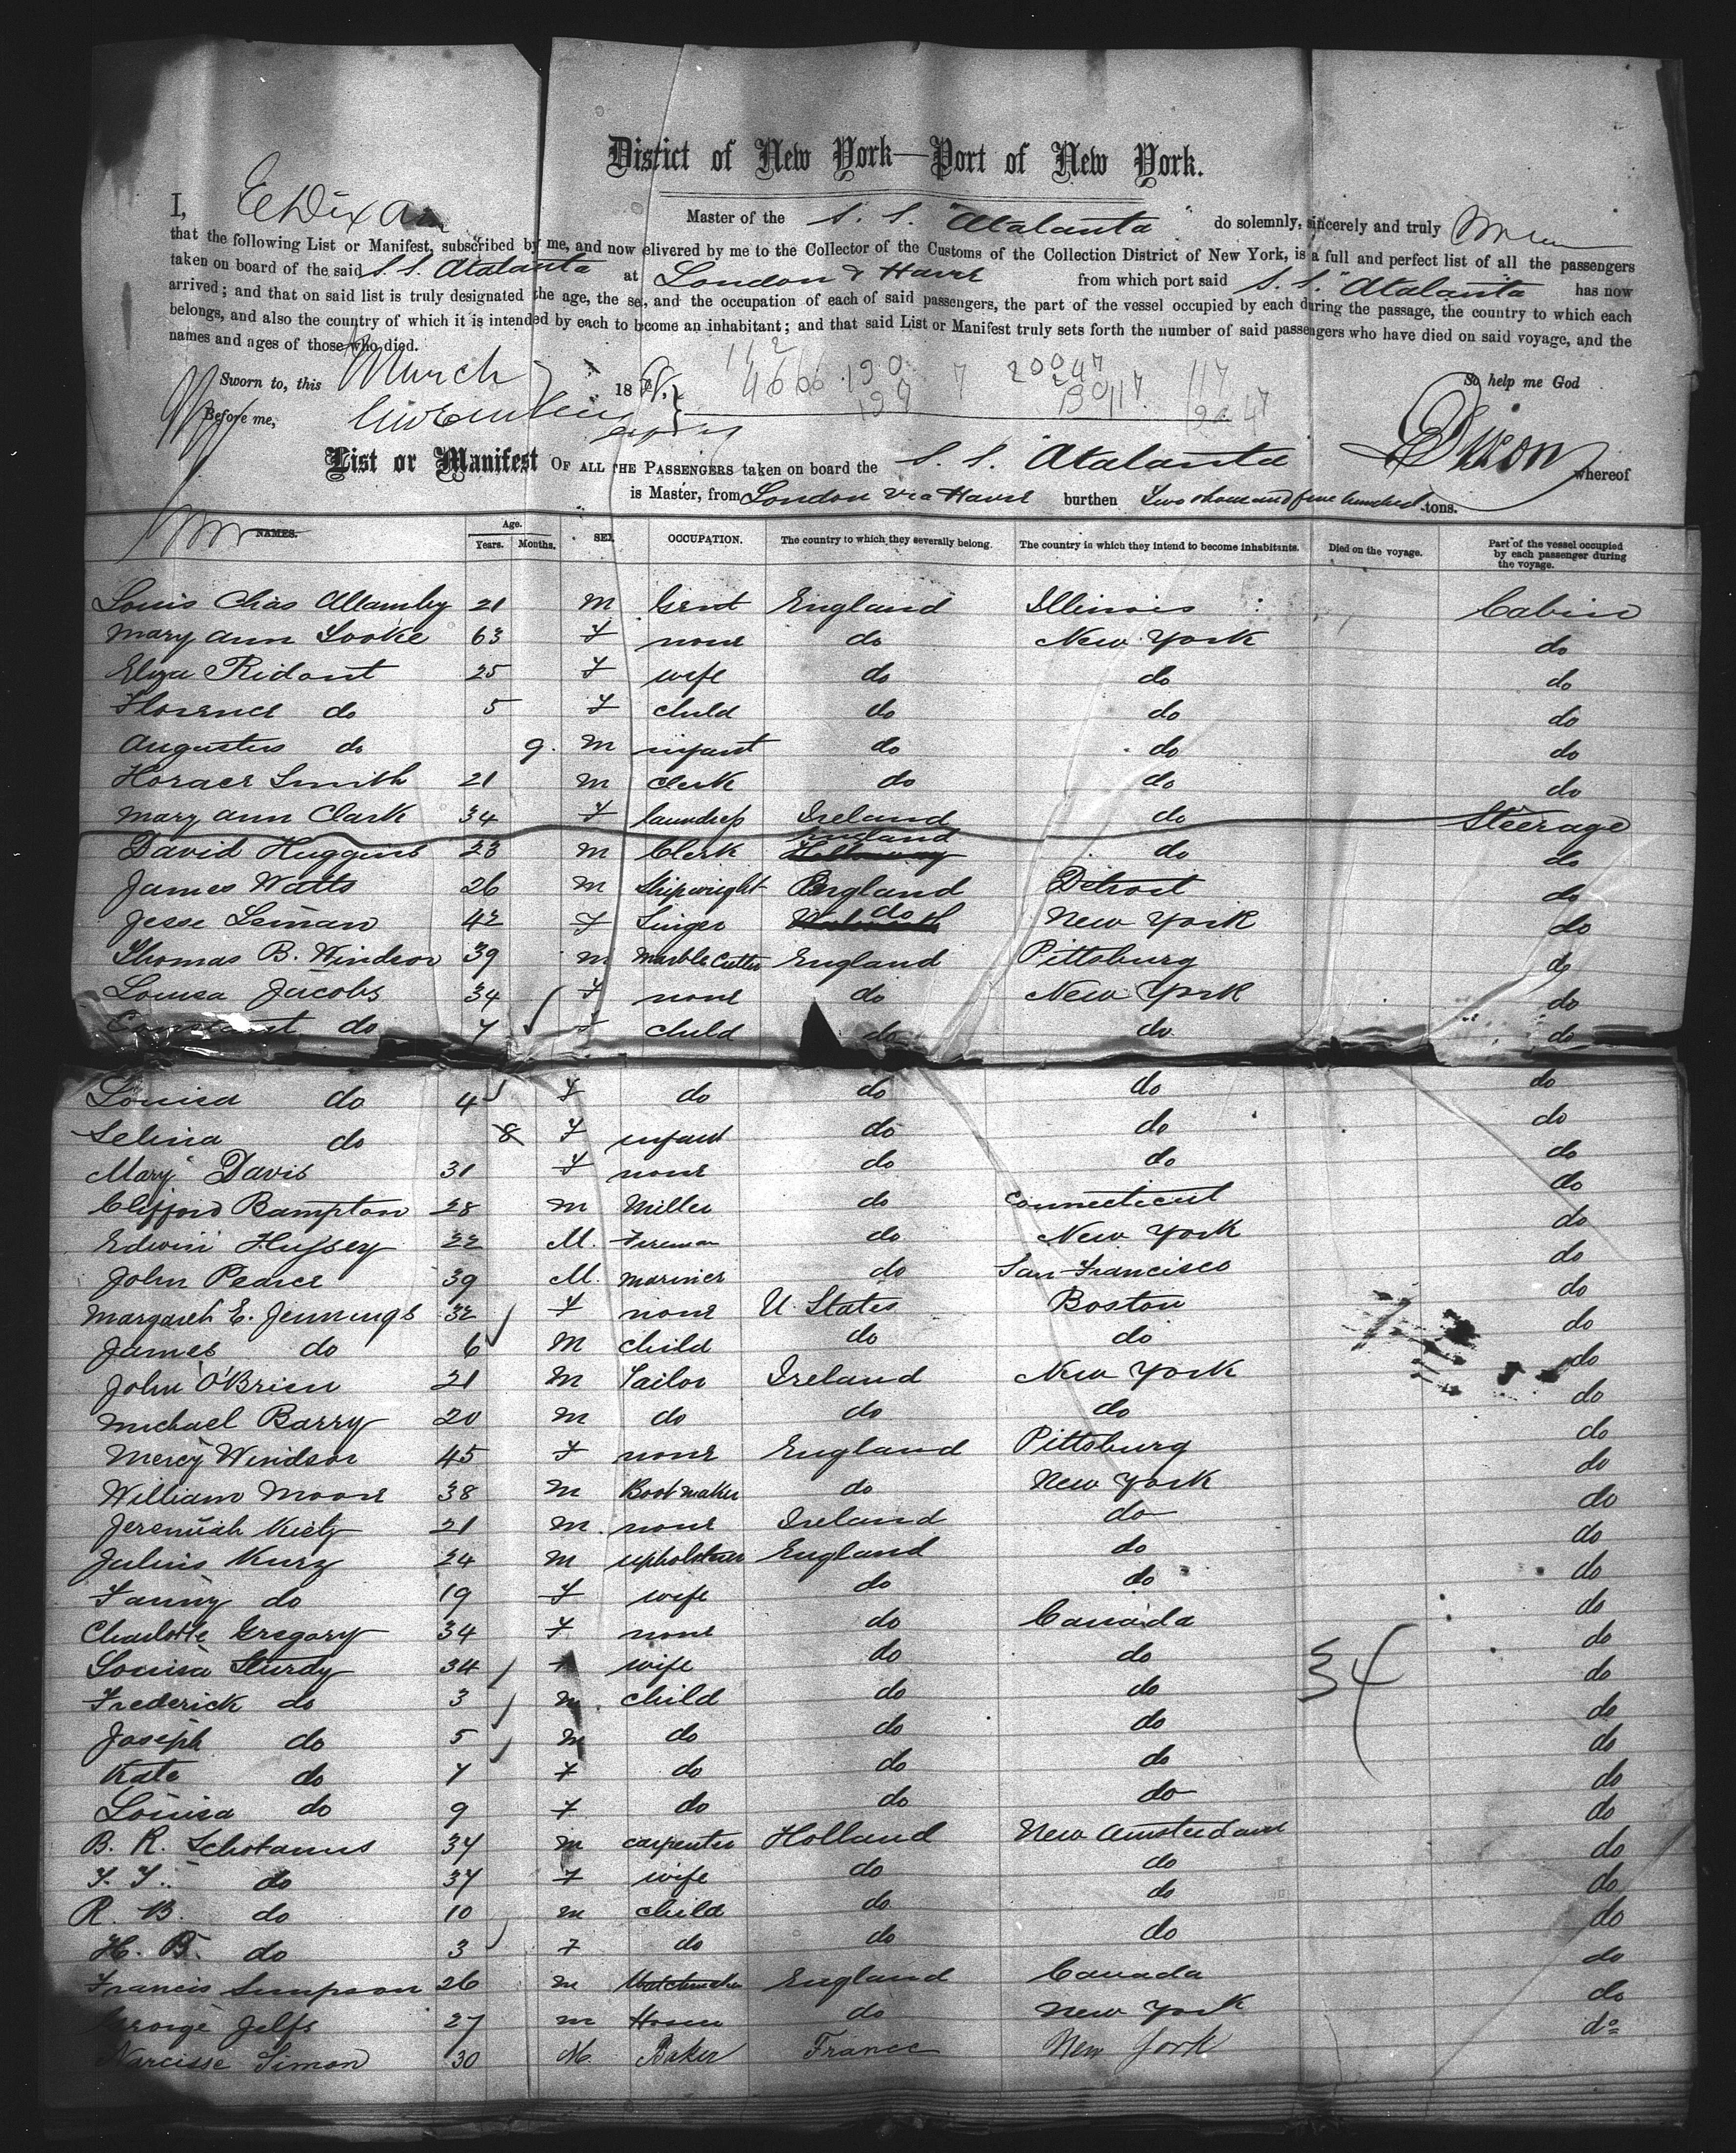 District of New York—Port of New York.
I, E Dixon Master of the S. S. "Atalanta" do solemnly, sincerely and truly
that the following List or Manifest, subscribed by me, and now elivered by me to the Collector of the Customs of the Collection District of New York, is a full and perfect list of all the passengers
taken on board of the said S. S. Atalanta at London & Havre from which port said S. S. "Atalanta has now
arrived; and that on said list is truly designated the age, the se, and the occupation of each of said passengers, the part of the vessel occupied by each during the passage, the country to which each
belongs, and also the country of which it is intended by each to become an inhabitant; and that said List or Manifest truly sets forth the number of said passengers who have died on said voyage, and the
names and ages of those who died.
Sworn to, this March 18 So help me God
Before me, Dixon
List or Manifest OF ALL THE PASSENGERS taken on board the S. S. Atalanta whereof
is Master, from London via Havre burthen Two thousand five hundred tons.
NAMES. Age. Years. Months. SEX. OCCUPATION. The country to which they severally belong. The country in which they intend to become inhabitants. Died on the voyage. Part of the vessel occupied by each passenger during the voyage.
Louis Chas Allamby 21 M Gent England Illinois Cabin
Mary Ann Looke 63 F none do New York do
Eliza Ridout 25 F wife do do do
Florence do 5 F child do do do
Augustus do 9 M infant do do do
Horace Smith 21 M Clerk do do do
Mary Ann Clark 34 F laundress Ireland do Steerage
David Huggins 23 M Clerk England do do
James Watts 26 M Shipwright England Detroit do
Jesse Leman 42 F Singer do New York do
Thomas B. Windsor 39 M Marble Cutter England Pittsburg do
Louisa Jacobs 34 F none do New York do
Constant do 7 F child do do do
Louisa do 4 F do do do do
Selina do 8 F infant do do do
Mary Davis 31 F none do do do
Clifford Bampton 28 M Miller do Connecticut do
Edwin Hussey 22 M. Fireman do New York do
John Pearce 39 M. Mariner do San Francisco do
Margareth E. Jennings 32 F none U. States Boston do
James do 6 M child do do do
John O'Brien 21 M Tailor Ireland New York do
Michael Barry 20 M do do do do
Mercy Windsor 45 F none England Pittsburg do
William Moore 38 M Bootmaker do New York do
Jeremiah Kiely 21 M. none Ireland do do
Julius Kurz 24 M upholsterer England do do
Fanny do 19 F wife do do do
Charlotte Gregory 34 F none do Canada do
Louisa Sturdy 34 F wife do do do
Frederick do 3 M child do do do
Joseph do 5 M do do do do
Kate do 7 F do do do do
Louisa do 9 F do do do do
B. R. Schotanus 34 M carpenter Holland New Amsterdam do
T. T. do 34 F wife do do do
R. B. do 10 M child do do do
H. B. do 3 F do do do do
Francis Simpson 26 M Watchmaker England Canada do
George Jelfs 27 M do New York do
Narcisse Simon 30 M. Baker France New York do